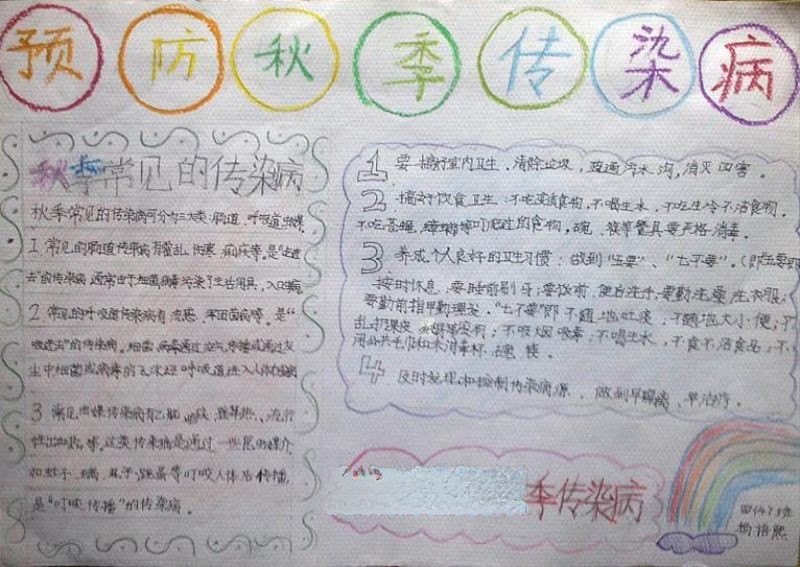 预防秋季传染病
秋季常见的传染病
秋季常见的传染病可分为三大类:肠道、呼吸道、虫媒
1 常见的肠道传染病有霍乱、伤寒、痢疾等。是“吃进
去”的传染病,通常由于细菌病毒污染了生活用具,入口
2. 常见的呼吸道传染病有流感、军团菌病等。是“
吸进去”的传染病。细菌、病毒通过空气传播或通过灰
生中细菌或病毒的飞沫经呼吸道进入人体
3 常见虫媒传染病有乙脑、登革热、流行
性出血热等,这类传染病是通过一些昆虫媒介
如蚊子、蝇、虱子、跳蚤等叮咬人体后传播,
是“叮咬传播”的传染病。
1 要搞好室内卫生,清除垃圾,疏通污水沟,消灭四害。
2 搞好饮食卫生:不吃变质食物,不喝生水,不吃生冷不洁食物,
不吃苍蝇、蟑螂等叮爬过的食物,碗、筷等餐具要严格消毒。
3 养成个人良好的卫生习惯:做到“五要”、“七不要”。(即五要即
按时休息;要睡前刷牙;要饭前、便后洗手;要勤洗澡、洗衣服;
要勤剪指甲勤理发。“七不要”即不随地吐痰,不随地大小便;不
乱扔果皮、纸屑等废物;不吸烟吸毒;不喝生水,不食不洁食品;不
用公共毛巾和未消毒杯、碗、筷
4 及时发现和控制传染病源,做到早隔离、早治疗。
季传染病
四(4)班